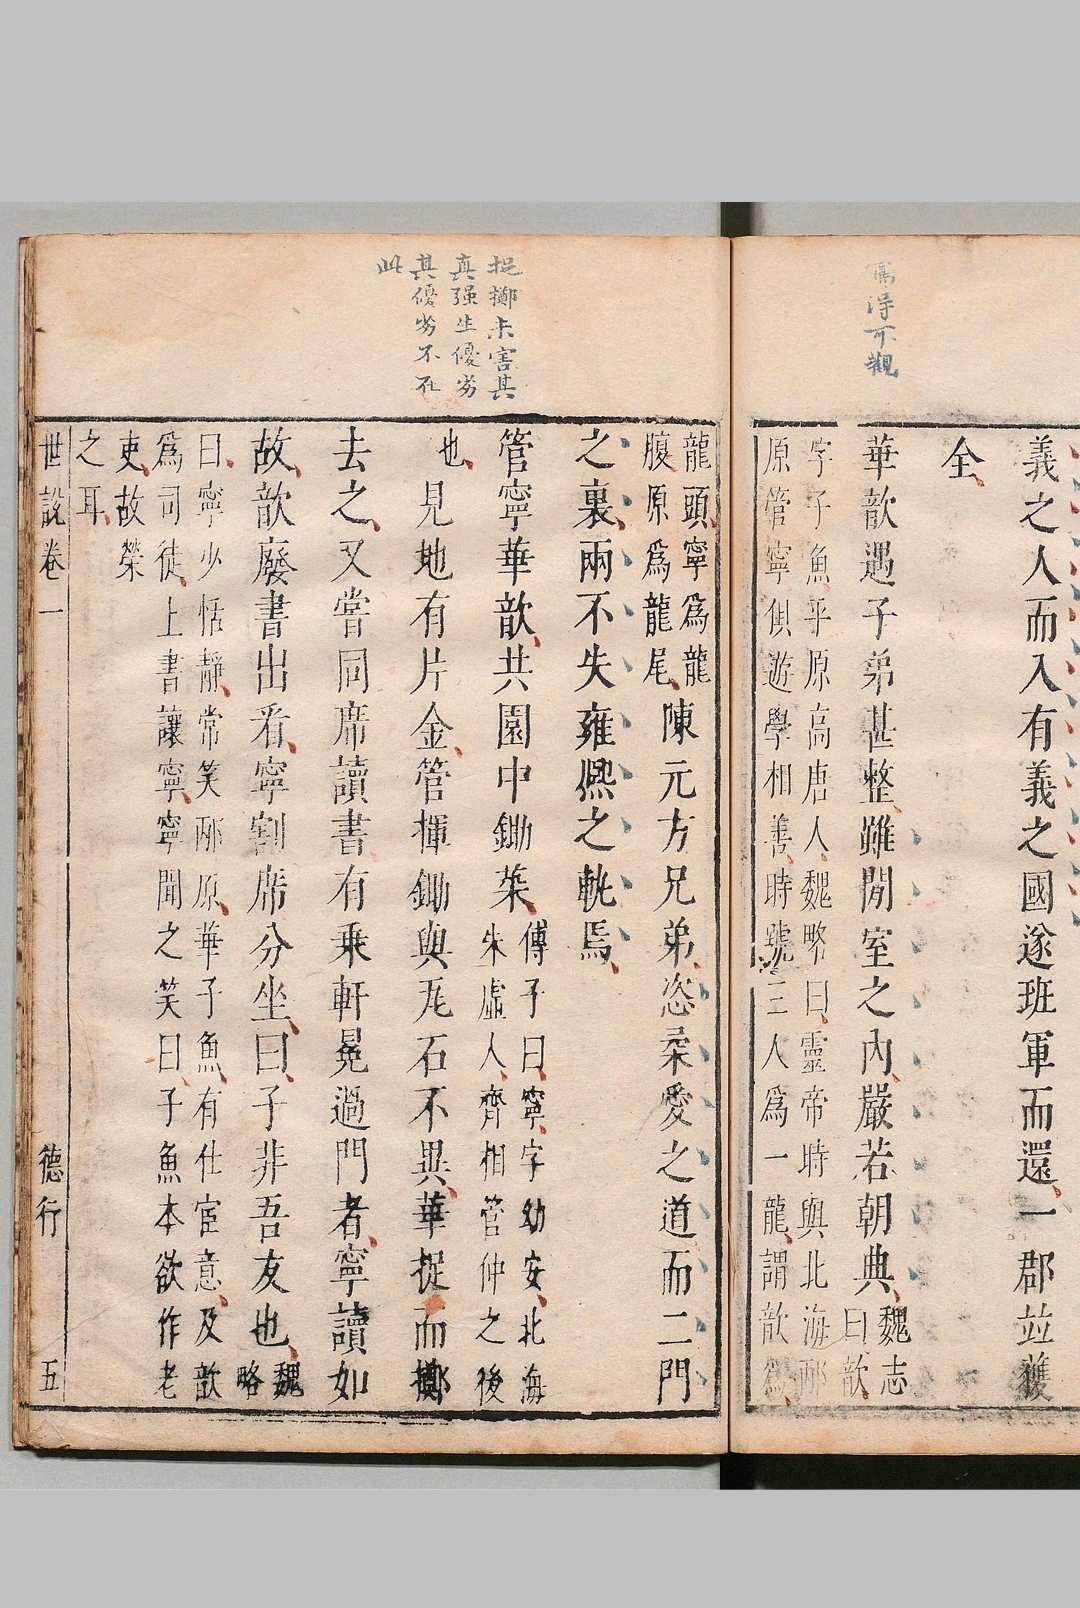 寫得可觀
義之人而入有義之國遂班軍而還一郡並獲
全
華歆遇子弟甚整雖閒室之內嚴若朝典魏志
曰歆
字子魚平原高唐人魏略曰靈帝時與北海邴
原管寧俱遊學相善時號三人為一龍謂歆為
捉擲未害其
真强生優劣
其優劣不在
此
龍頭寧為龍
腹原為龍尾陳元方兄弟恣柔愛之道而二門
之裏兩不失雍熙之軌焉
管寧華歆共園中鋤菜傅子曰寧字幼安北海
朱虛人齊相管仲之後
也見地有片金管揮鋤與瓦石不異華捉而擲
去之又嘗同席讀書有乘軒冕過門者寧讀如
故歆廢書出看寧割席分坐曰子非吾友也魏
略
曰寧少恬靜常笑邴原華子魚有仕宦意及歆
為司徒上書讓寧寧聞之笑曰子魚本欲作老
吏故榮
之耳
世說卷一 德行 五